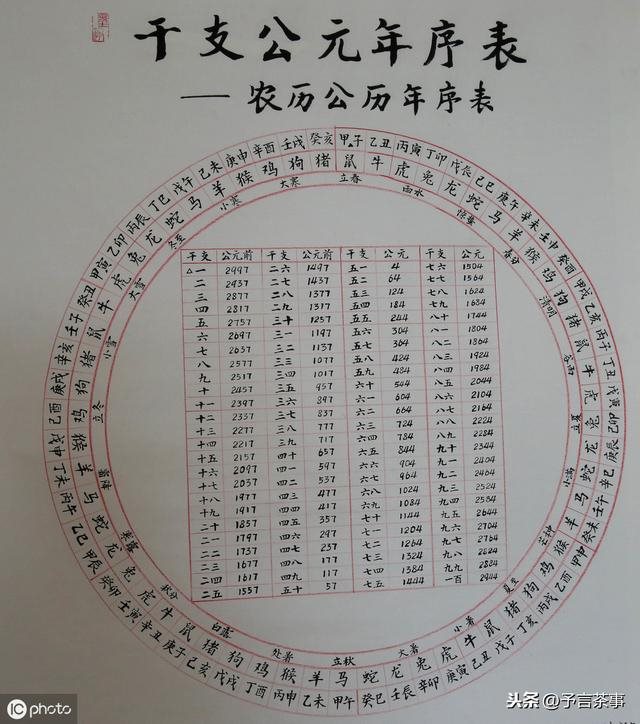 干支公元年序表
— 农历公历年序表
甲子 乙丑 丙寅 丁卯 戊辰 己巳 庚午 辛未 壬申 癸酉 甲戌 乙亥 丙子 丁丑 戊寅 己卯 庚辰 辛巳 壬午 癸未 甲申 乙酉 丙戌 丁亥 戊子 己丑 庚寅 辛卯 壬辰 癸巳 甲午 乙未 丙申 丁酉 戊戌 己亥 庚子 辛丑 壬寅 癸卯 甲辰 乙巳 丙午 丁未 戊申 己酉 庚戌 辛亥 壬子 癸丑 甲寅 乙卯 丙辰 丁巳 戊午 己未 庚申 辛酉 壬戌 癸亥
鼠 牛 虎 兔 龙 蛇 马 羊 猴 鸡 狗 猪 鼠 牛 虎 兔 龙 蛇 马 羊 猴 鸡 狗 猪 鼠 牛 虎 兔 龙 蛇 马 羊 猴 鸡 狗 猪 鼠 牛 虎 兔 龙 蛇 马 羊 猴 鸡 狗 猪 鼠 牛 虎 兔 龙 蛇 马 羊 猴 鸡 狗 猪
立春 雨水 惊蛰 春分 清明 谷雨 立夏 小满 芒种 夏至 小暑 大暑 立秋 处暑 白露 秋分 寒露 霜降 立冬 小雪 大雪 冬至 小寒 大寒
干支 公元前 干支 公元前 干支 公元 干支 公元
△一 2997 二六 1497 五一 4 七六 1504
二 2937 二七 1437 五二 64 七七 1564
三 2877 二八 1377 五三 124 七八 1624
四 2817 二九 1317 五四 184 七九 1684
五 2757 三十 1257 五五 244 八十 1744
六 2697 三一 1197 五六 304 八一 1804
七 2637 三二 1137 五七 364 八二 1864
八 2577 三三 1077 五八 424 八三 1924
九 2517 三四 1017 五九 484 八四 1984
十 2457 三五 957 六十 544 八五 2044
十一 2397 三六 897 六一 604 八六 2104
十二 2337 三七 837 六二 664 八七 2164
十三 2277 三八 777 六三 724 八八 2224
十四 2217 三九 717 六四 784 八九 2284
十五 2157 四十 657 六五 844 九十 2344
十六 2097 四一 597 六六 904 九一 2404
十七 2037 四二 537 六七 964 九二 2464
十八 1977 四三 477 六八 1024 九三 2524
十九 1917 四四 417 六九 1084 九四 2584
二十 1857 四五 357 七十 1144 九五 2644
二一 1797 四六 297 七一 1204 九六 2704
二二 1737 四七 237 七二 1264 九七 2764
二三 1677 四八 177 七三 1324 九八 2824
二四 1617 四九 117 七四 1384 九九 2884
二五 1557 五十 57 七五 1444 一百 2944
iC photo
头条 @予言茶事